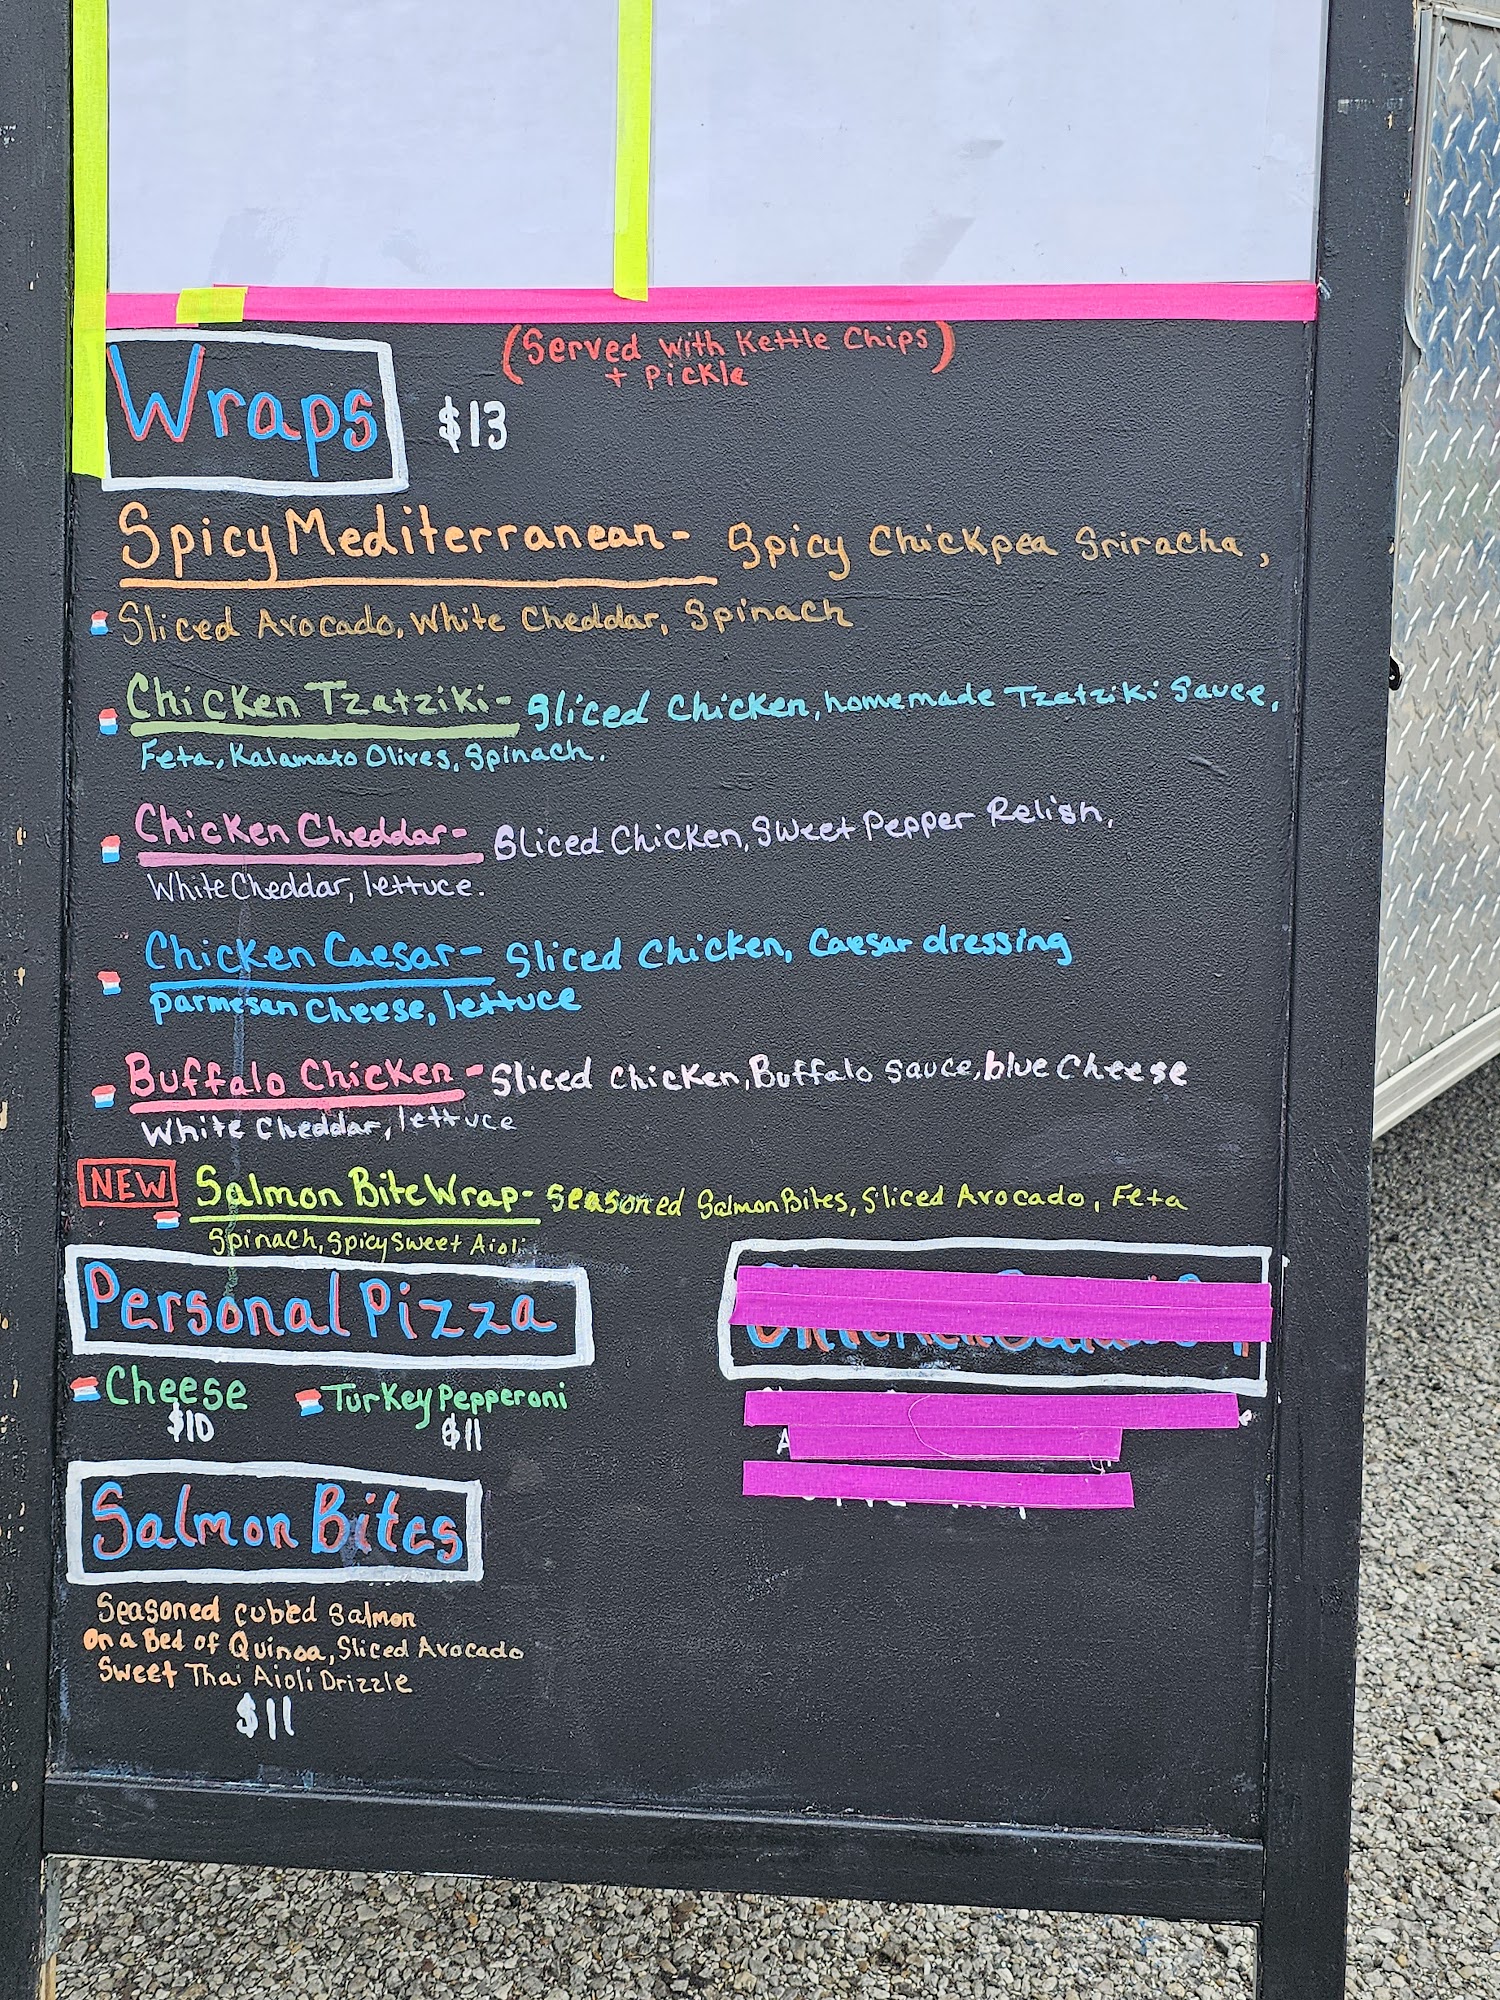 Wraps
(Served with Kettle Chips)
+ Pickle
$13
Spicy Mediterranean- Spicy Chickpea Sriracha,
Sliced Avocado, White Cheddar, Spinach
Chicken Tzatziki- Sliced Chicken, homemade Tzatziki Sauce,
Feta, Kalamato Olives, Spinach.
Chicken Cheddar- Sliced Chicken, Sweet Pepper Relish,
White Cheddar, lettuce.
Chicken Caesar- Sliced Chicken, Caesar dressing
parmesan cheese, lettuce
Buffalo Chicken- Sliced Chicken, Buffalo sauce, blue Cheese
White Cheddar, lettuce
NEW Salmon Bite Wrap- Seasoned Salmon Bites, Sliced Avocado, Feta
Spinach, Spicy Sweet Aioli
Personal Pizza
Cheese Turkey Pepperoni
$10 $11
Salmon Bites
Seasoned cubed Salmon
on a Bed of Quinoa, Sliced Avocado
Sweet Thai Aioli Drizzle
$11